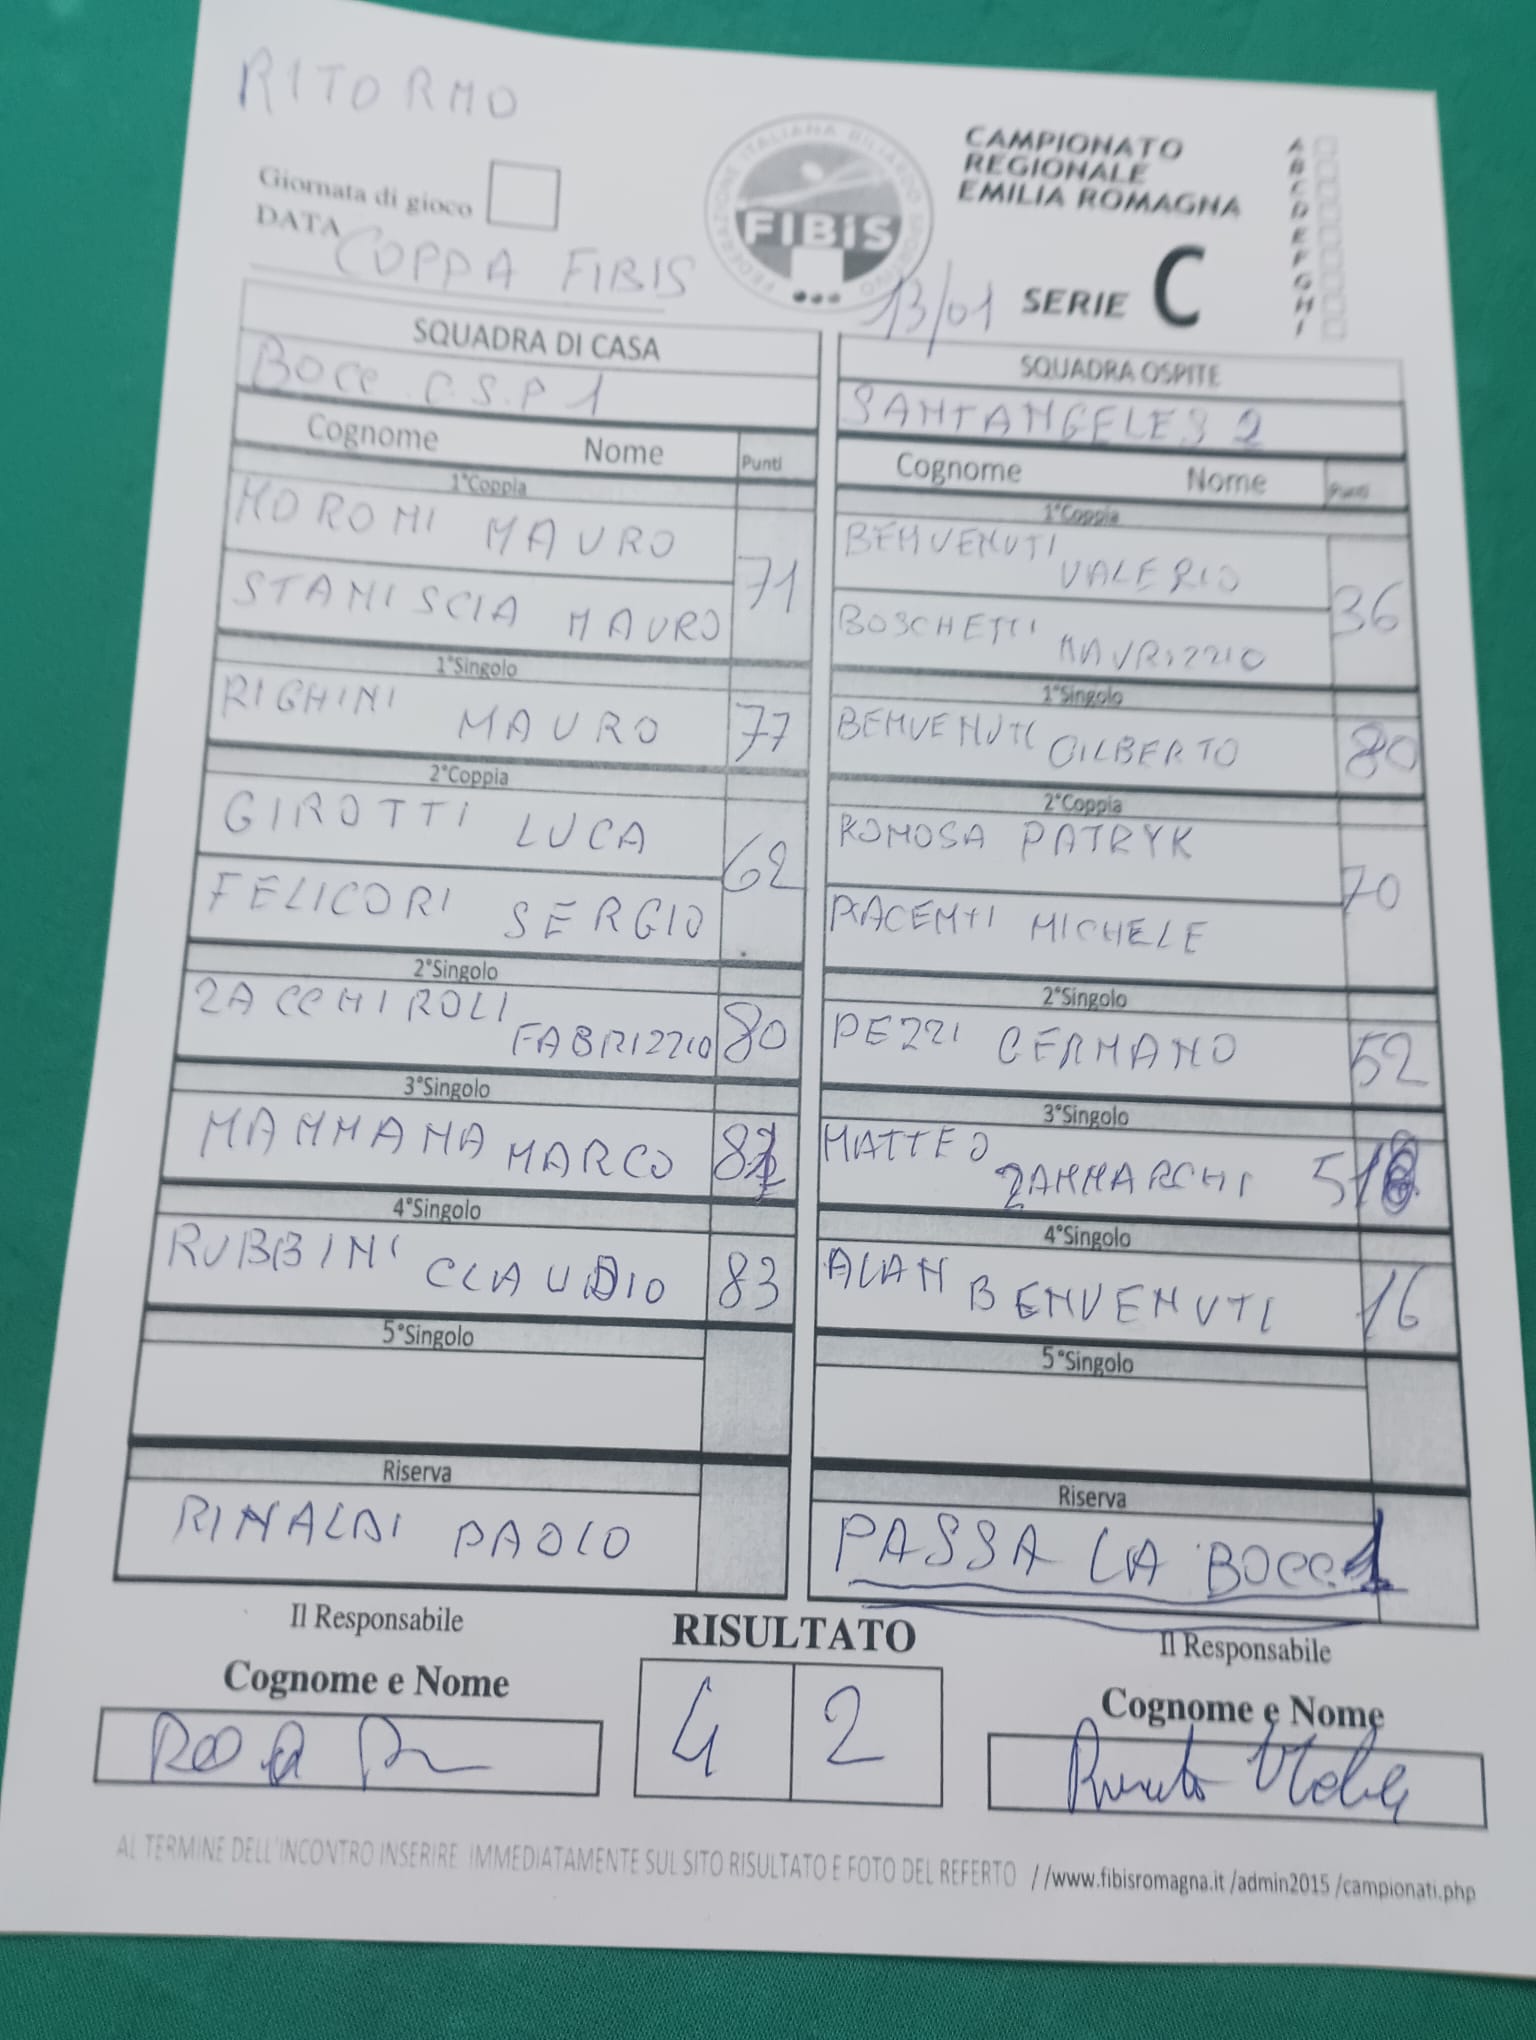 RITORNO
Giornata di gioco
DATA COPPA FIBIS
FEDERAZIONE ITALIANA BILIARDO SPORTIVO
FIBiS
CAMPIONATO
REGIONALE
EMILIA ROMAGNA
13/01 SERIE C
A
B
C
D
E
F
G
H
I
SQUADRA DI CASA
Boce C.S.P 1
Cognome Nome Punti
1°Coppia
MORONI MAURO
STANISCIA MAURO
71
1°Singolo
RIGHINI MAURO 77
2°Coppia
GIROTTI LUCA
FELICORI SERGIO
62
2°Singolo
ZACCHIROLI FABRIZZIO 80
3°Singolo
MAMMANA MARCO
4°Singolo
RUBBINI CLAUDIO 83
5°Singolo
Riserva
RINALDI PAOLO
SQUADRA OSPITE
SANTANGELES 2
Cognome Nome Punti
1°Coppia
BENVENUTI VALERIO
BOSCHETTI MAURIZZIO
36
1°Singolo
BENVENUTI GILBERTO 80
2°Coppia
KOMOSA PATRYK
PIACENTI MICHELE
70
2°Singolo
PEZZI GERMANO 52
3°Singolo
MATTEO ZAMMARCHI
4°Singolo
ALAN BENVENUTI 16
5°Singolo
Riserva
PASSA LA BOCE 1
Il Responsabile
Cognome e Nome
RISULTATO
4 2
Il Responsabile
Cognome e Nome
AL TERMINE DELL'INCONTRO INSERIRE IMMEDIATAMENTE SUL SITO RISULTATO E FOTO DEL REFERTO //www.fibisromagna.it /admin2015 /campionati.php